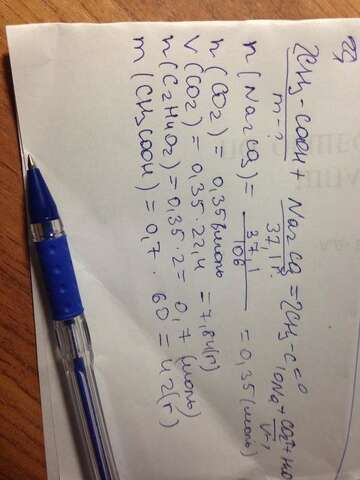 2CH₃-COOH + Na₂CO₃ = 2CH₃-C=O ONa + CO₂↑ + H₂O
m-? 37,1г V-
n(Na₂CO₃) = 37,1/106 = 0,35(моль)
n(CO₂) = 0,35моль
V(CO₂) = 0,35·22,4 = 7,84(г)
n(C₂H₄O₂) = 0,35·2 = 0,7(моль)
m(CH₃COOH) = 0,7 · 60 = 42(г)